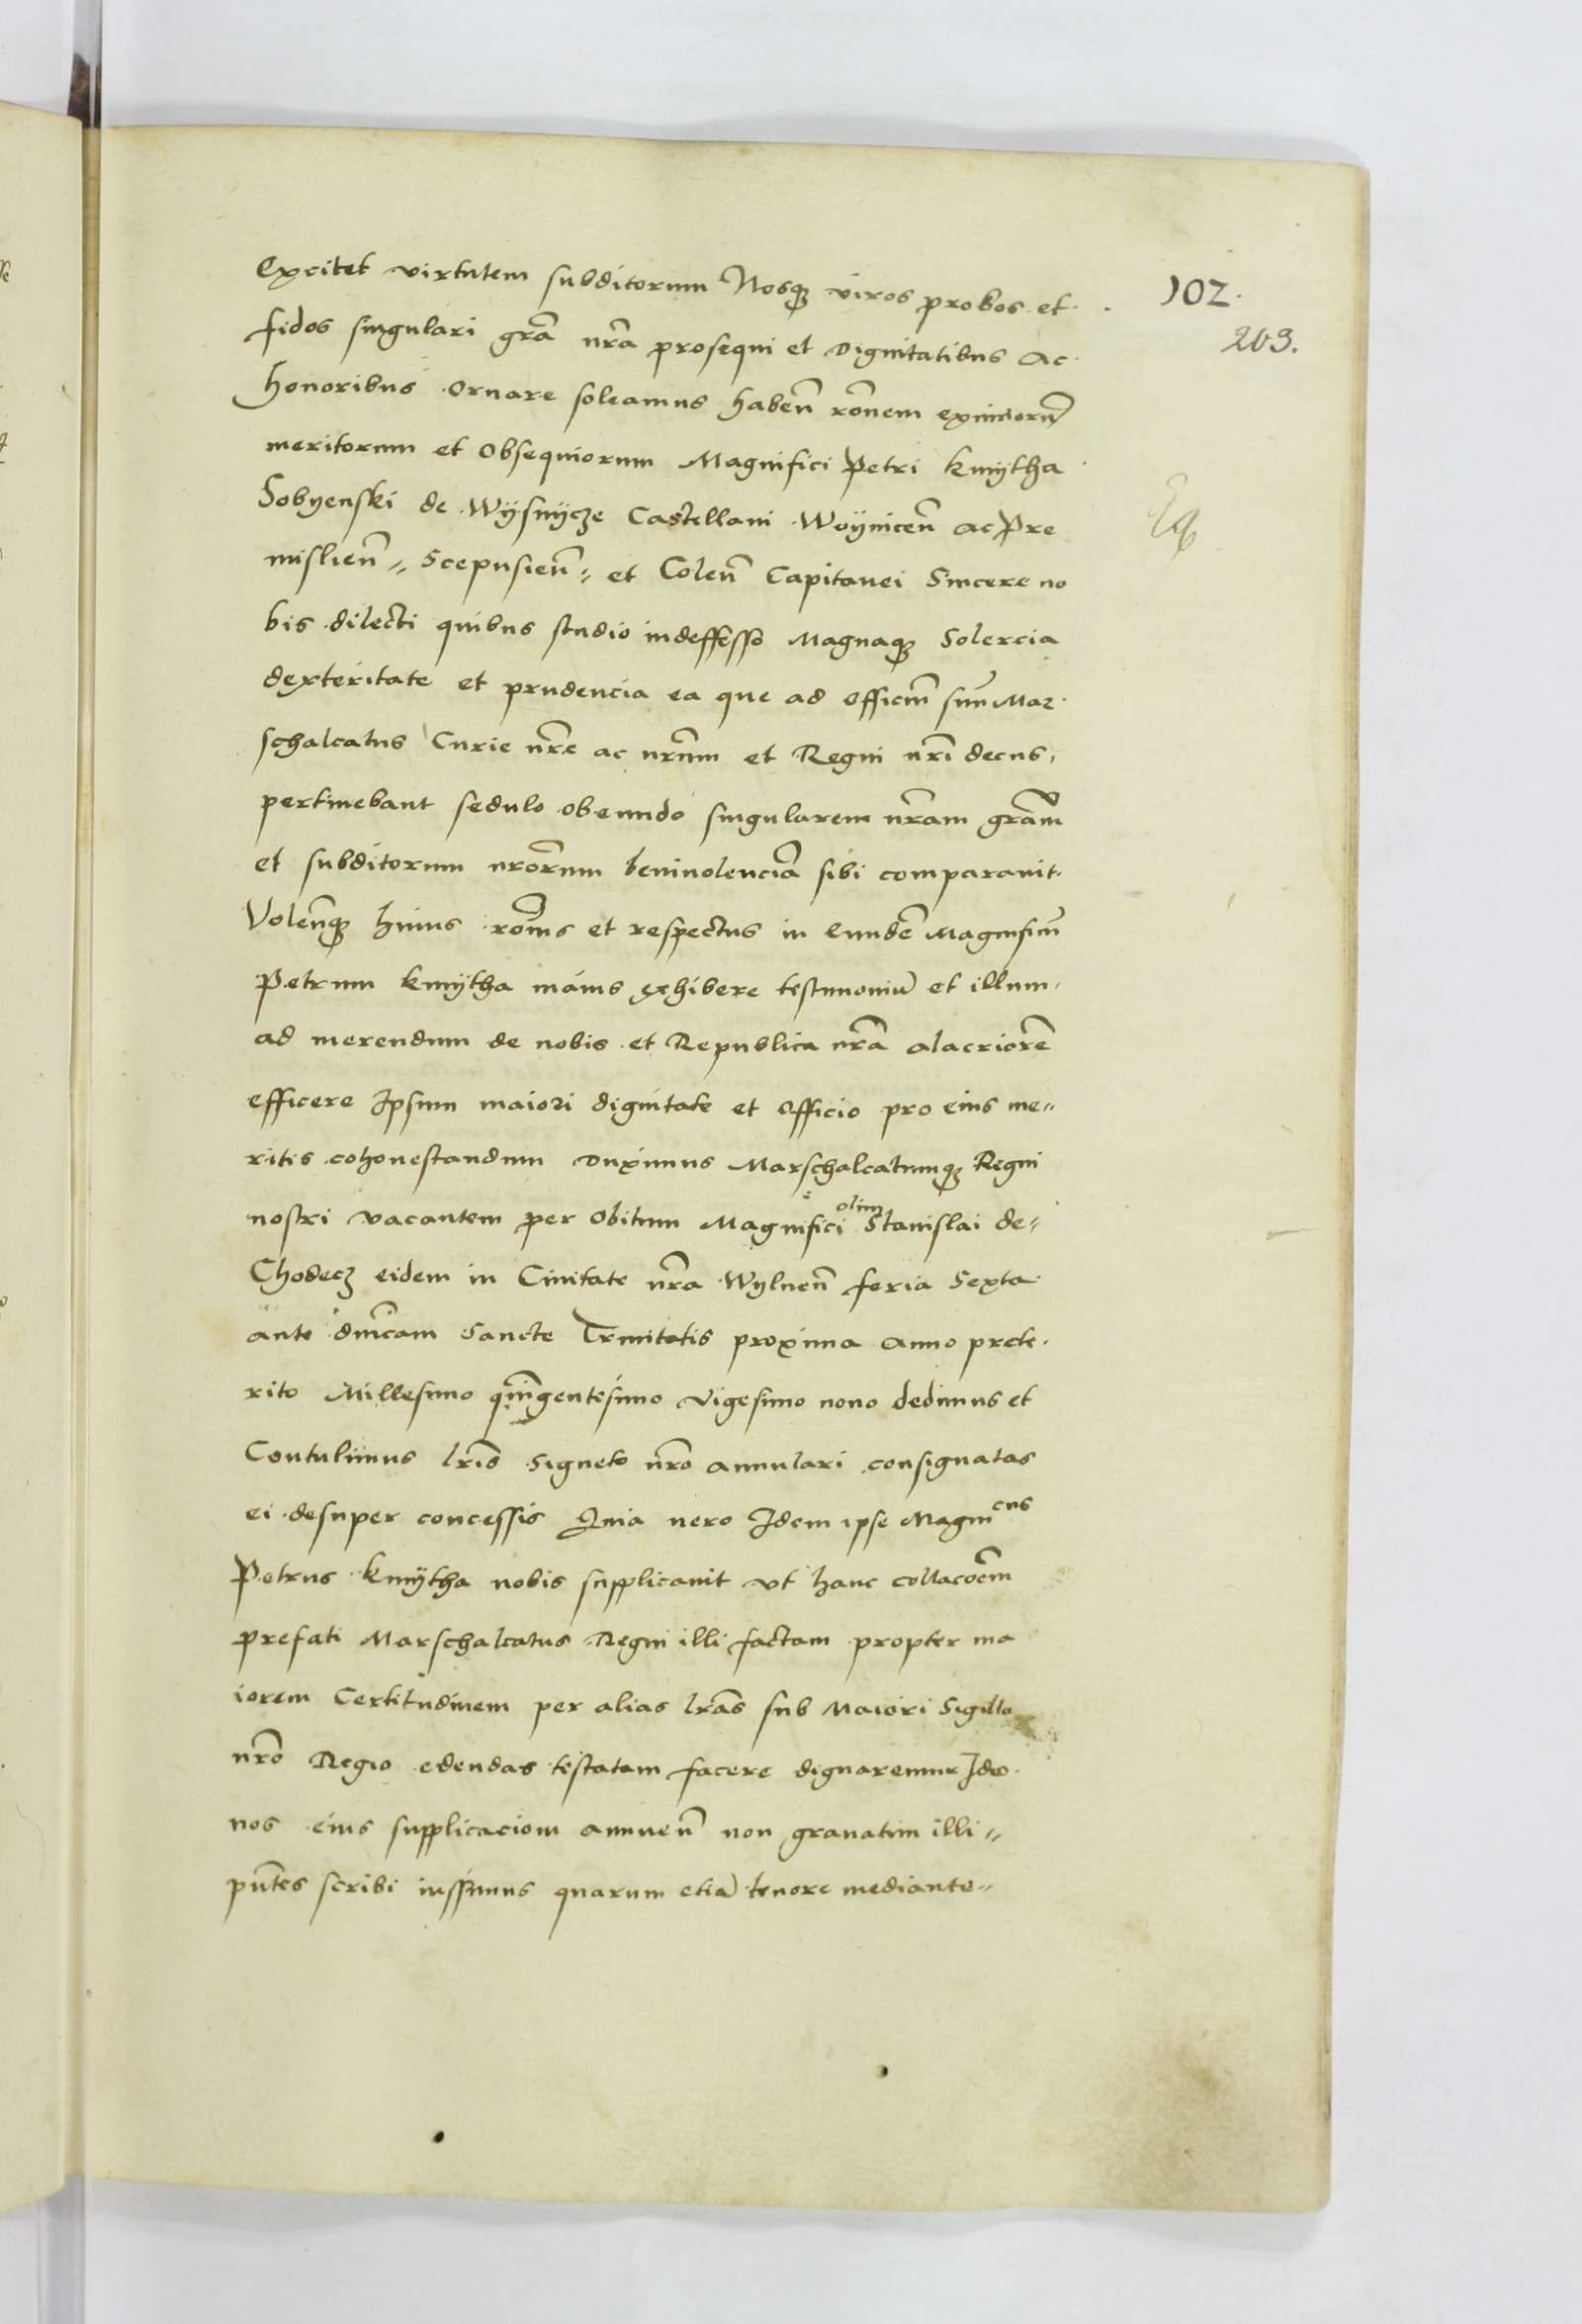 Excitet virtutem subditorum Nosqꝫ viros probos et
102.
fidos singulari grã nrã prosequi et Dignitatibus ac
203.
honoribus ornare soleamus habeñ rõnem eximiorũ
meritorum et Obsequiorum Magnifici Petri Kmÿtha
Sobyenski de Wÿsnÿcze Castellani Woÿniceñ ac Pre
mislieñ„ Scepusieñ„ et Coleñ Capitanei Sincere no
bis dilecti quibus studio indeffesso Magnaqꝫ Solercia
dexteritate et prudencia ea que ad officiũ suũ Mar
schalcatus Curie nrẽ ac nrũm et Regni nrĩ decus,
pertinebant sedulo obeundo singularem nrãm grãm
et subditorum nrõrum beniuolenciã sibi comparauit.
Voleñqꝫ huius rõnis et respectus in Eundẽ Magnificũ
Petrum Kmÿtha maius exhibere testimoniũ et illum
ad merendum de nobis et Republica nrã alacriorẽ
efficere Ipsum maiori dignitate et officio pro eius me„
ritis cohonestandum Duximus Marschalcatumqꝫ Regni
nostri vacantem per obitum Magnifici olim Stanislai de„
Chodecz eidem in Ciuitate nrã Wylneñ feria Sexta
ante dnĩcam Sancte Trinitatis proxima anno prete.
rito Millesimo quĩngentesimo vigesimo nono dedimus et
Contulimus lrĩs signeto nrõ annulari consignatas
ei desuper concessis Quia uero Idem ipse Magnicus
Petrus Kmÿtha nobis supplicauit vt hanc collacõem
prefati Marschalcatus Regni illi factam propter ma
iorem Certitudinem per alias lrãs sub Maiori Sigillo
nrõ Regio edendas testatam facere dignaremur Ideo
nos eius supplicaciom annueñ non grauatim illi„
pñtes scribi iussimus quarum etiã tenore mediante„